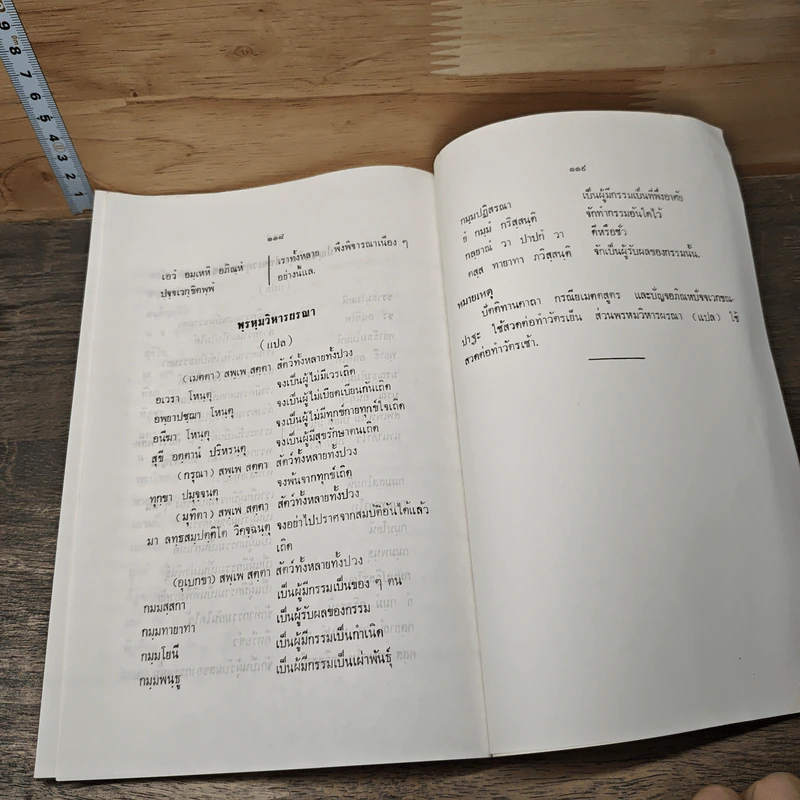 ๑๑๘
เอวํ อมฺเหหิ อภิณฺหํ เราทั้งหลาย พึงพิจารณาเนือง ๆ
ปจฺจเวกฺขิตพฺพํ อย่างนี้แล.
พฺรหฺมวิหารผรณา
(แปล)
(เมตตา) สพฺเพ สตฺตา สัตว์ทั้งหลายทั้งปวง
อเวรา โหนฺตุ จงเป็นผู้ไม่มีเวรเถิด
อพฺยาปชฺฌา โหนฺตุ จงเป็นผู้ไม่เบียดเบียนกันเถิด
อนีฆา โหนฺตุ จงเป็นผู้ไม่มีทุกข์กายทุกข์ใจเถิด
สุขี อตฺตานํ ปริหรนฺตุ จงเป็นผู้มีสุขรักษาตนเถิด
(กรุณา) สพฺเพ สตฺตา สัตว์ทั้งหลายทั้งปวง
ทุกฺขา ปมุจฺจนฺตุ จงพ้นจากทุกข์เถิด
(มุทิตา) สพฺเพ สตฺตา สัตว์ทั้งหลายทั้งปวง
มา ลทฺธสมฺปตฺติโต วิคจฺฉนฺตุ จงอย่าไปปราศจากสมบัติอันได้แล้ว
เถิด
(อุเบกขา) สพฺเพ สตฺตา สัตว์ทั้งหลายทั้งปวง
กมฺมสฺสกา เป็นผู้มีกรรมเป็นของ ๆ ตน
กมฺมทายาทา เป็นผู้รับผลของกรรม
กมฺมโยนี เป็นผู้มีกรรมเป็นกำเนิด
กมฺมพนฺธู เป็นผู้มีกรรมเป็นเผ่าพันธุ์
๑๑๙
กมฺมปฏิสรณา เป็นผู้มีกรรมเป็นที่พึ่งอาศัย
ยํ กมฺมํ กริสฺสนฺติ จักทำกรรมอันใดไว้
กลฺยาณํ วา ปาปกํ วา ดีหรือชั่ว
ตสฺส ทายาทา ภวิสฺสนฺติ จักเป็นผู้รับผลของกรรมนั้น.
หมายเหตุ
ปัตติทานคาถา กรณียเมตตสูตร และปัญจอภิณหปัจจเวกขณ-
ปาฐะ ใช้สวดต่อทำวัตรเย็น ส่วนพรหมวิหารผรณา (แปล) ใช้
สวดต่อทำวัตรเช้า.
9 8 7 6 5 4 3 2 1